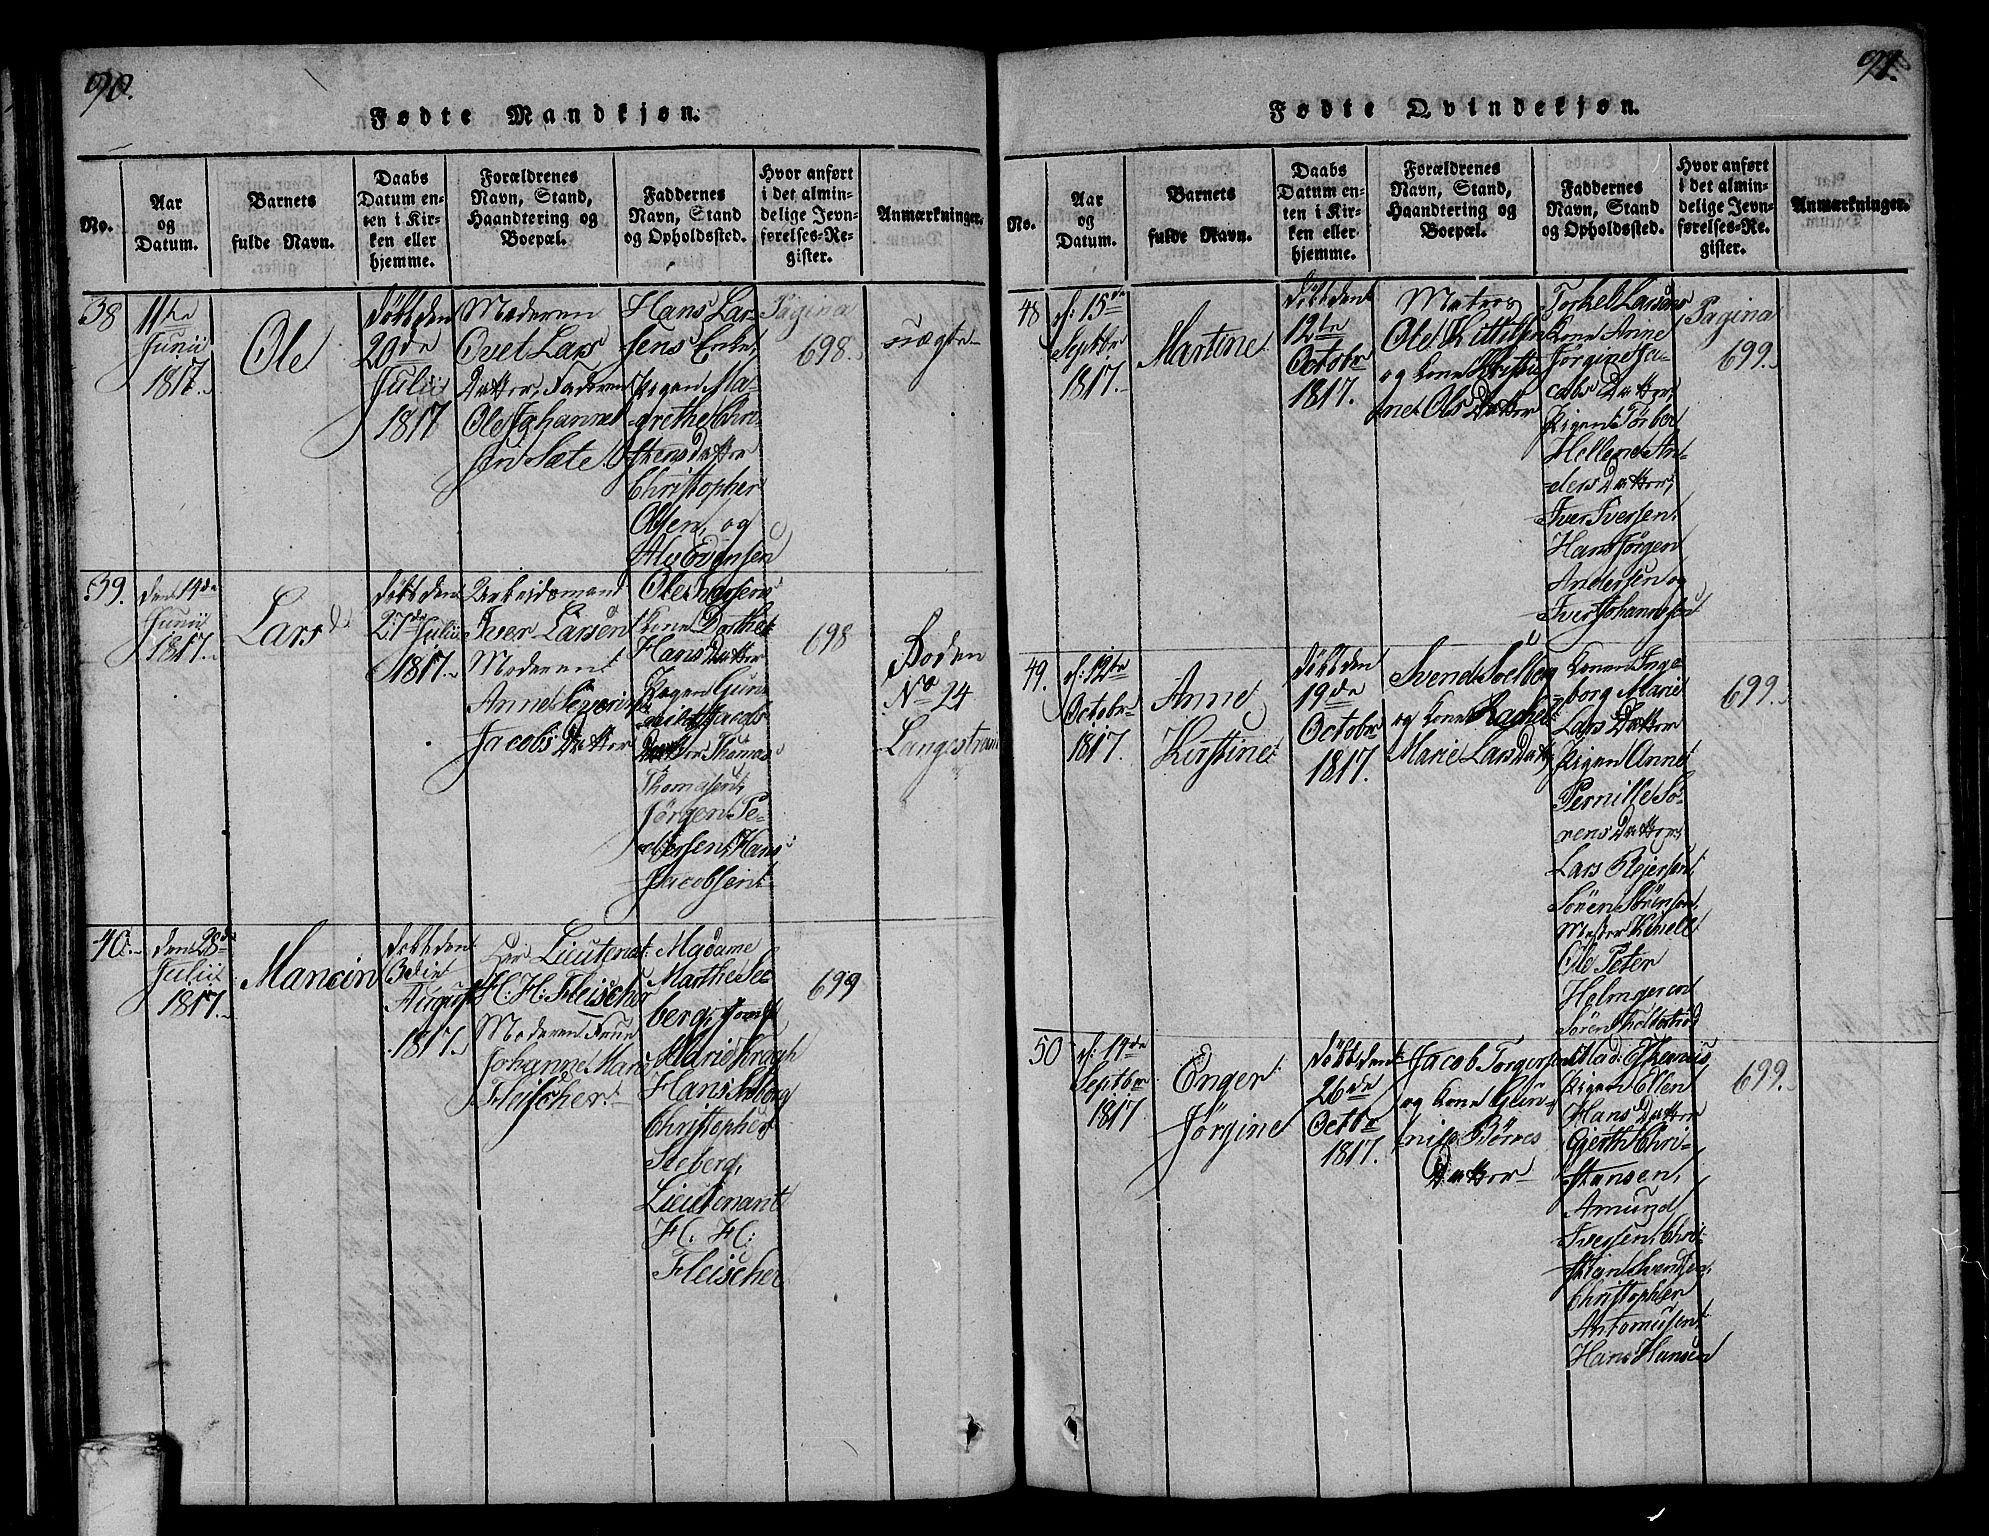 90.
Fødte Mandkjøn.
No.
Aar
og
Datum.
Barnets
fulde Navn.
Daabs
Datum en-
ten i Kir-
ken eller
hjemme.
Forældrenes
Navn, Stand,
Haandtering og
Boepæl.
Faddernes
Navn, Stand
og Opholdssted.
Hvor anført
i det almin-
delige Jevn-
førelses-Re-
gister.
Anmærkninger.
38
11te
Junii
1817.
Ole
døbt den
20de
Julii
1817
Moderen
Lars
Datter, Faderen
Ole Johanne
sen Sæte
Hans Lar
sens Enke,
Pigen Ma-
grethe Chri-
stens Datter
Christopher
Olsen, og
Alv Evensen
Pagina
698.
uægte
39.
den 14de
Junii
1817.
Lars
døbt den
27de Julii
1817.
Arbeidsmand
Iver Larsen
Moderen
Anne Severine
Jacobs Datter
Ole Larsens
Kone Dorthe
Hans Datter
Pigen Gun
Jacobs
Datter Thomas
Thomasen,
Jørgen Pe-
dersen, Hans
Jacobsen
698
Boden
No 24
Langestrand
40.
den 28de
Julii
1817.
Mancin
døbt den
3die
August
1817.
Hr Lieutenat
H: H: Fleischer
Moderen Frue
Johanne Marie
Fleischer
Madame
Marthe See
berg, Jomf
Marie Kragh
Hans Seeberg
Christopher
Seeberg,
Lieutenant
H. H:
Fleischer
699
91.
Fødte Qvindekjøn.
No.
Aar
og
Datum.
Barnets
fulde Navn.
Daabs
Datum en-
ten i Kir-
ken eller
hjemme.
Forældrenes
Navn, Stand,
Haandtering og
Boepæl.
Faddernes
Navn, Stand
og Opholdssted.
Hvor anført
i det almin-
delige Jevn-
førelses-Re-
gister.
Anmærkninger.
48
d: 15de
Septbr
1817.
Martine
døbt den
12te
Octobr
1817.
Matros
Ole Kittilsen
og Kone
Ols Datter
Torkel Larsens
Kone Anne
Jørgine Ja-
cobs Datter,
Pigen Torber
Hellene An-
ders Datter,
Iver Iversen
Hans Jørgen
Andersen og
Iver Johannesen
Pagina
699.
49.
d: 12te
Octobr
1817.
Anne
Kirstine
døbt den
19de
Octobr
1817.
Svend Solberg
og Kone Rachel
Marie Lars Datter
Konen Inge-
borg Marie
Lars Datter
Pigen Anne
Pernille Sø-
rens Datter,
Lars Rejersen
Søren Sørensen
Mester Kivell
Ole Peter
Holmgeren
Søren
699.
50
d: 14de
Septbr
1817
Enger
Jørgine
døbt den
26de
Octbr
1817.
Jacob Torgersen
og Kone Gun-
nild Børres
Datter
Mad:
Pigen Ellen
Hans Datter
Gerth Chri-
stensen,
Amund
Iversen, Chri-
stian Svendsen,
Christopher
Antonusen
Hans Hansen
699.